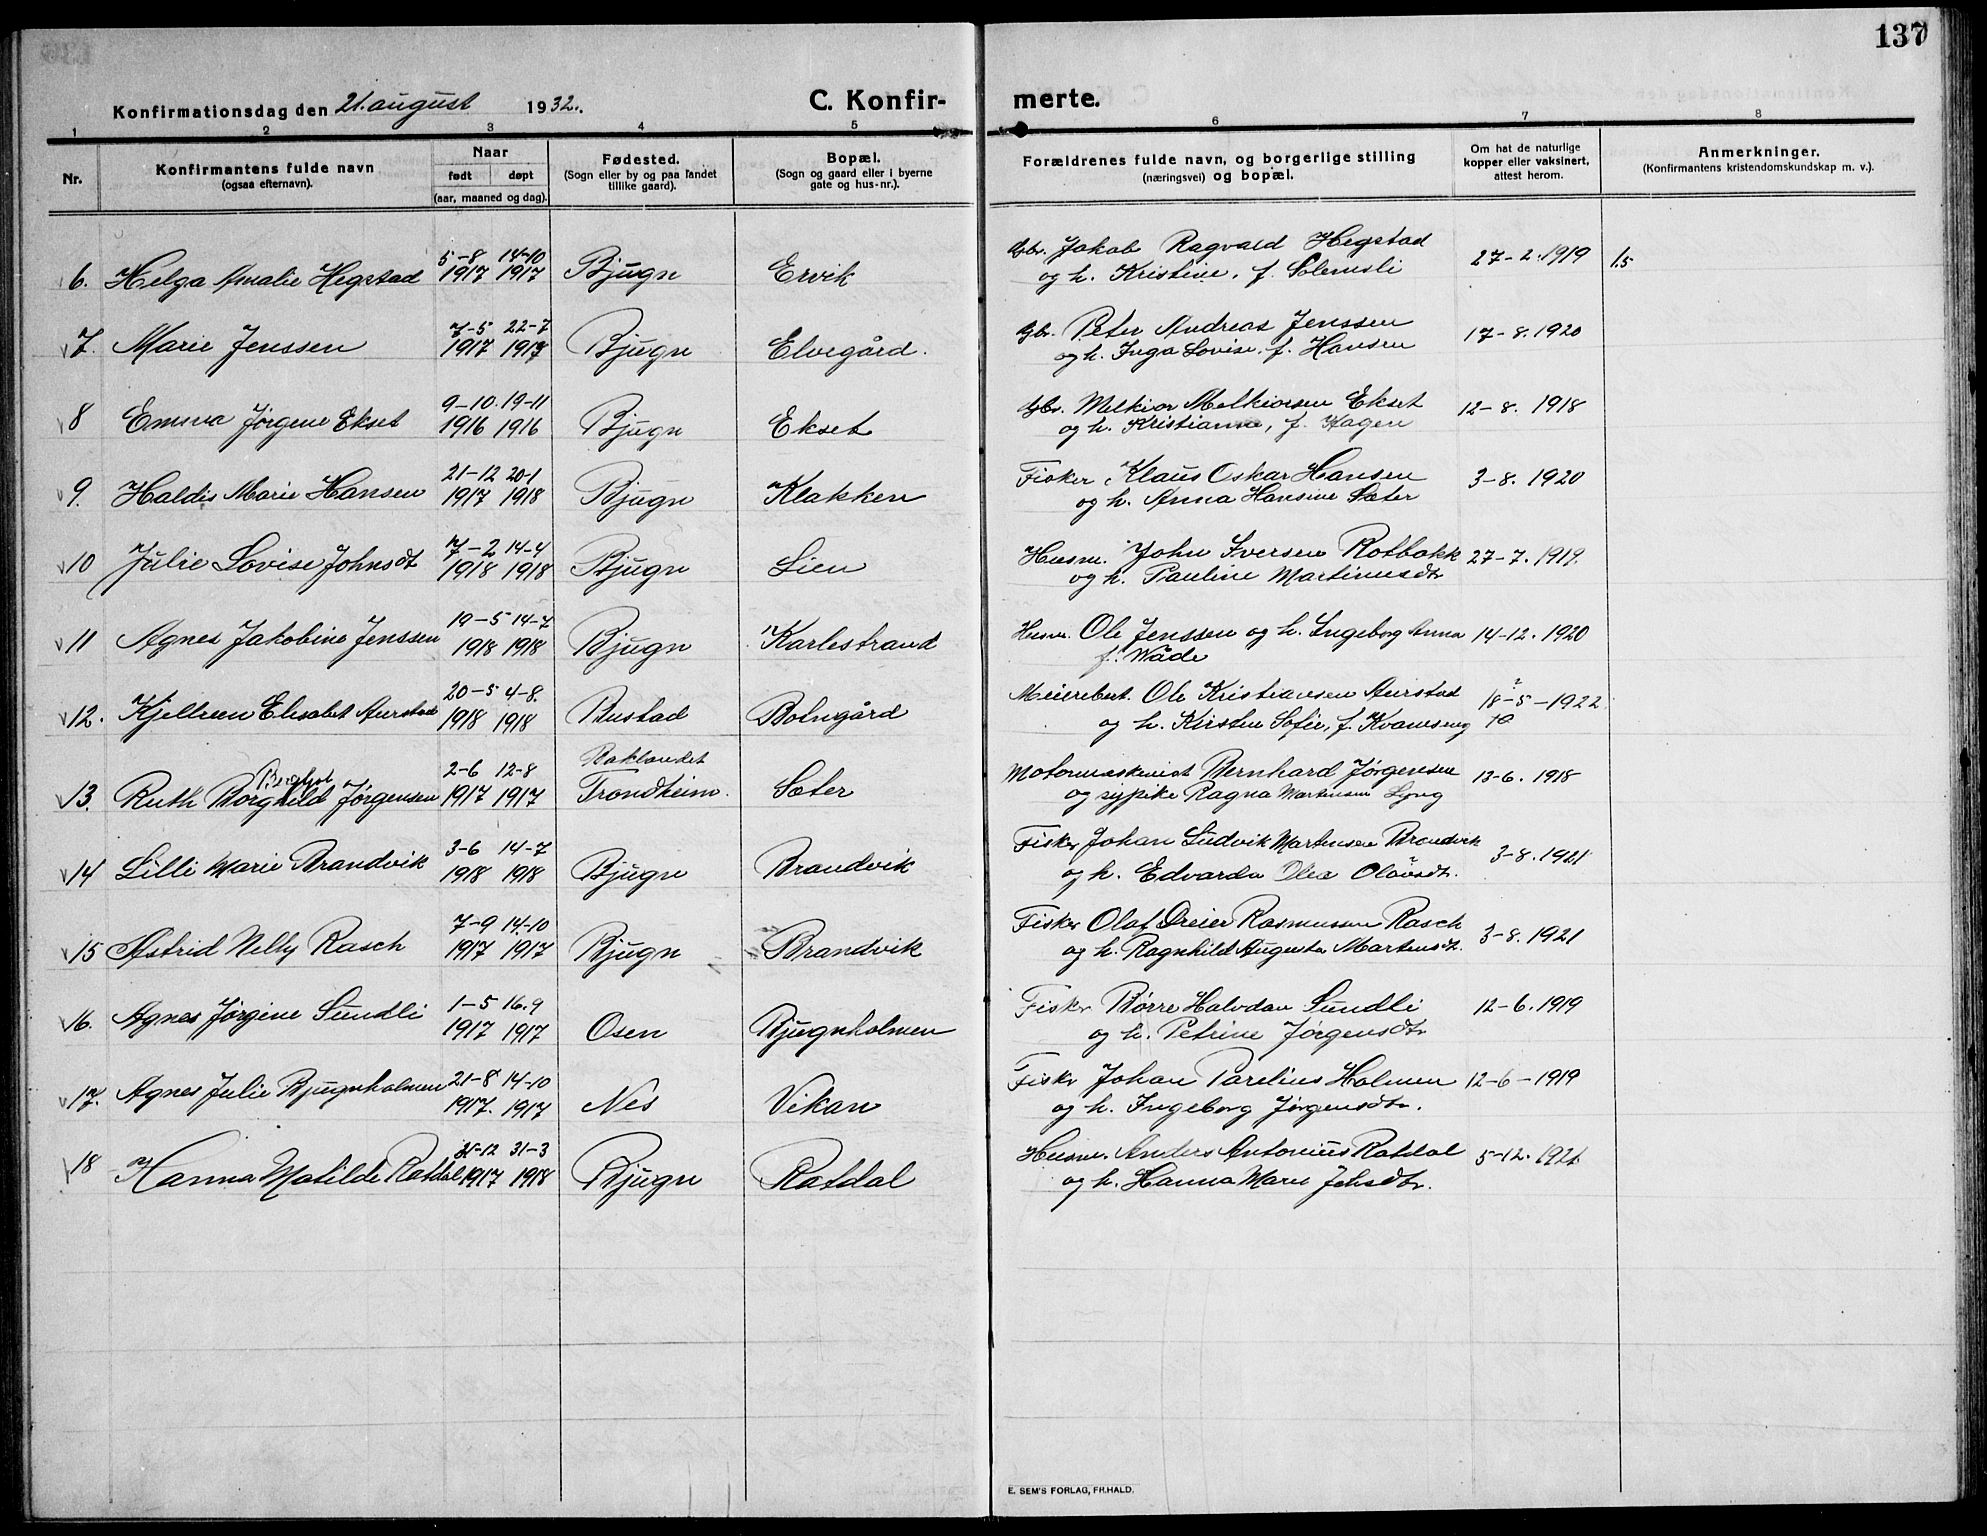 137
Konfirmationsdag den 21. august 1932.
C. Konfirmerte.
1 2 3 4 5 6 7 8
Nr.
Konfirmantens fulde navn
(ogsaa efternavn).
Naar
født døpt
(aar, maaned og dag).
Fødested.
(Sogn eller by og paa landet
tillike gaard).
Bopæl.
(Sogn og gaard eller i byerne
gate og hus-nr.).
Forældrenes fulde navn, og borgerlige stilling
(næringsvei) og bopæl.
Om hat de naturlige
kopper eller vaksinert,
attest herom.
Anmerkninger.
(Konfirmantens kristendomskundskap m. v.).
5-8 14-10 Gbr. Jakob Ragvald Hegstad
6. Helga Amalie Hegstad 1917 1917 Bjugn Ervik og h. Kristine, f. Solemsli 27-2.1919 1.5
7-5 22-7 Gbr. Peter Andreas Jenssen
7. Marie Jenssen 1917 1917 Bjugn Elvegård. og h. Inga Lovise, f. Hansen 17-8.1920
9-10. 19-11 Gbr. Melkior Melkiorsen Ekset
8 Emma Jørgene Ekset 1916 1916 Bjugn Ekset og h. Kristianna, f. Hagen 12-8. 1918
21-12 20-1 Fisker Klaus Oskar Hansen
9. Haldis Marie Hansen 1917 1918 Bjugn Klakken og h. Anna Hansine Sæter 3-8. 1920
7-2 14-4 Husm. John Iversen Rotbakk
10 Julie Lovise Johnsdt 1918 1918 Bjugn Lien og h. Pauline Martinusdtr 27-7. 1919.
19-5 14-7 Husm. Ole Jenssen og h. Ingeborg Anna
11 Agnes Jakobine Jenssen 1918 1918 Bjugn Karlestrand f. Wåde 14-12. 1920
20-5 4-8. Meieribest. Ole Kristiansen Aurstad
12. Kjellrun Elisabet Aurstad 1918 1918 Bustad Botngård og h. Kirsten Sofie, f. Kvamseng 18-5-1922
Bergljot 2-6 12-8 Baklandet Motormaskinist Bernhard Jørgensen
13. Ruth Borghild Jørgensen 1917 1917 Trondheim. Sæter og sypike Ragna Martensen Lyng 13-6. 1918
3-6 14-7 Fisker Johan Ludvik Martensen Brandvik
14 Lilli Marie Brandvik 1918 1918 Bjugn Brandvik og h. Edvarda Olea Olausdtr. 3-8.1921
7-9 14-10 Fisker Olaf Dreier Rasmussen Rasch
15 Astrid Nelly Rasch 1917 1917 Bjugn Brandvik og h. Ragnhild Augusta Martinsdt. 3-8. 1921
1-5 16.9 Fisker Børre Halvdan Sundli
16. Agnes Jørgine Sundli 1917 1917 Osen Bjugnholmen og h. Petrine Jørgensdtr 12-6.1919
21-8 14-10 Fisker Johan Parelius Holmen
17. Agnes Julie Bjugnholmen 1917. 1917 Nes Vikan og h. Ingeborg Jørgensdtr. 12-6-1919
31-12 31-3 Husm. Anders Antonius Rotdal
18 Hanna Matilde Rotdal 1917 1918 Bjugn Rotdal og h. Hanna Marie Jensdtr. 5-12. 1921
E. SEM'S FORLAG, FR.HALD.